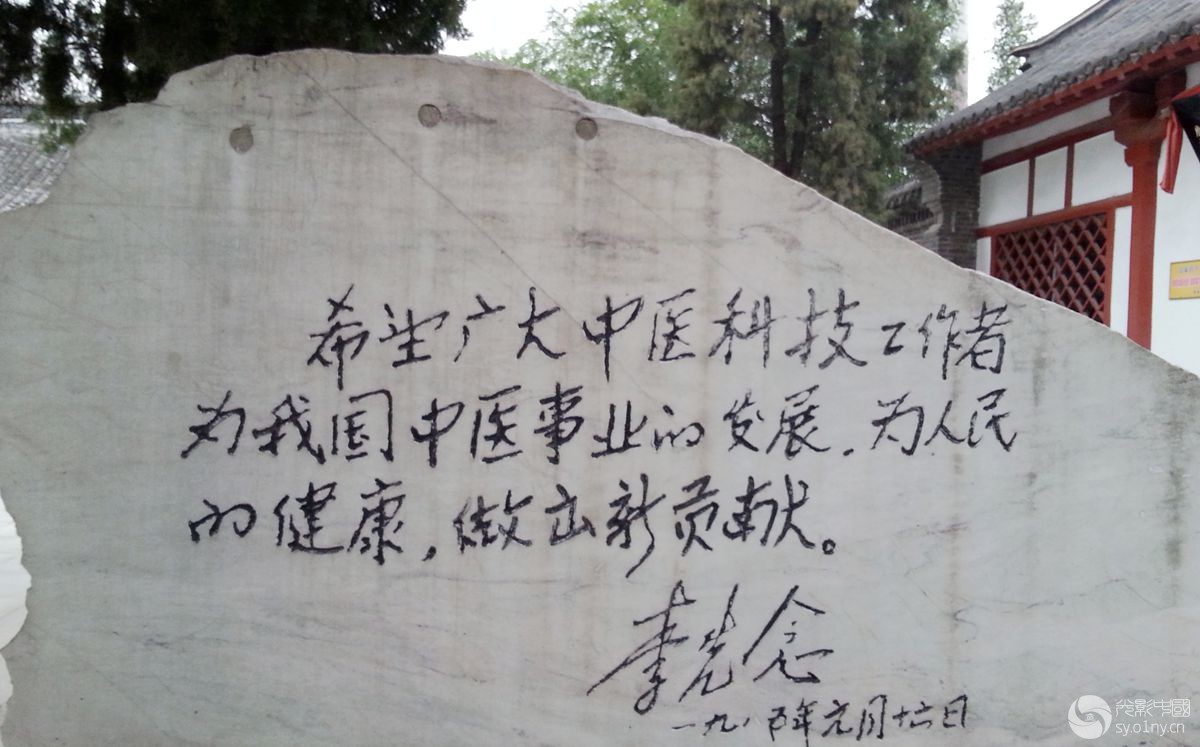 希望广大中医科技工作者
为我国中医事业的发展，为人民
的健康，做出新贡献。
李先念
一九八五年元月十六日
光影中国
sy.01ny.cn